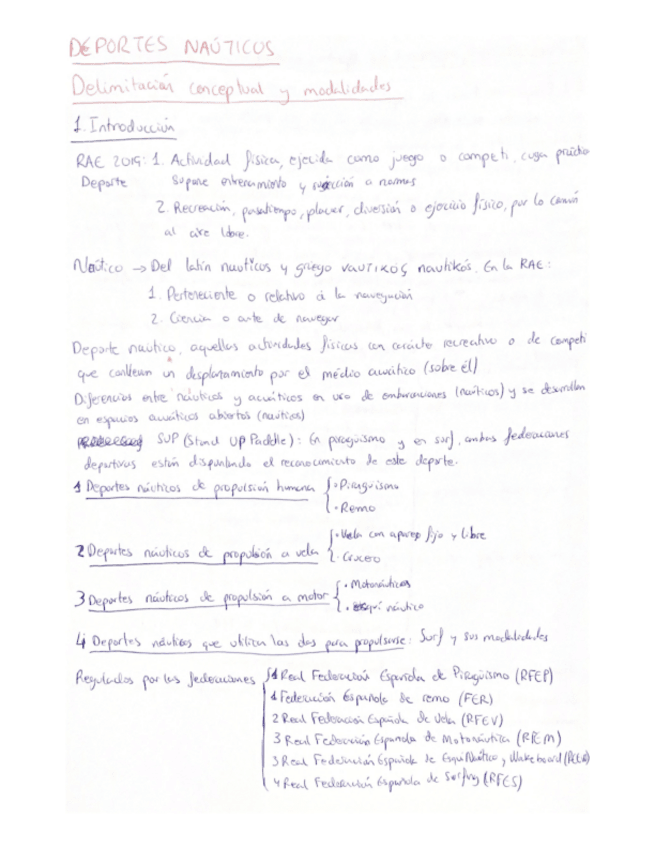 DEPORTES NAÚTICOS
Delimitación conceptual y modalidades
1. Introducción
RAE 2019: 1. Actividad física, ejercida como juego o competi, cuya práctic
Deporte supone entrenamiento y sujección a normas
2. Recreación, pasatiempo, placer, diversión o ejercicio físico, por lo común
al aire libre.
Naútico → Del latín nautĭcus y griego ναυτικός nautikós. En la RAE:
1. Perteneciente o relativo a la navegación
2. Ciencia o arte de navegar
Deporte naútico, aquellas actividades físicas con carácte recreativo o de competi
que conllevan un desplazamiento por el médio acuático (sobre él)
Diferencias entre naúticos y acuáticos en uso de embarcaciones (naúticos) y se desarrollan
en espacios acuáticos abiertos (naúticos)
SUP (Stand UP Paddle): En piragüismo y en surf, ambas federaciones
deportivas están disputando el reconocimiento de este deporte.
1 Deportes náuticos de propulsión humana { • Piragüismo
• Remo
2 Deportes náuticos de propulsión a vela { • Vela con aparejo fijo y libre
• Crucero
3 Deportes náuticos de propulsión a motor { • Motonáuticas
• esquí náutico
4 Deportes náuticos que utilizan las olas para propulsarse: Surf y sus modalidades
Regulados por las federaciones { 1 Real Federación Española de Piragüismo (RFEP)
1 Federación Española de remo (FER)
2 Real Federación Española de Vela (RFEV)
3 Real Federación Española de Motonáutica (RFEM)
3 Real Federación Española de Esquí Náutico y Wakeboard
4 Real Federación Española de Surfing (RFES)